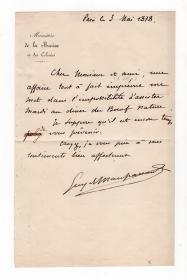 Paris le 3 Mai 1878.
Ministère
de la Marine
et des Colonies
Cher Monsieur et ami, une
affaire tout à fait imprévue me
met dans l'impossibilité d'assister
Mardi au dîner du Bœuf Nature.
Je suppose qu'il est encore temps
vous prévenir.
Croyez, je vous prie à mes
sentiments bien affectueux
Guy de Maupassant